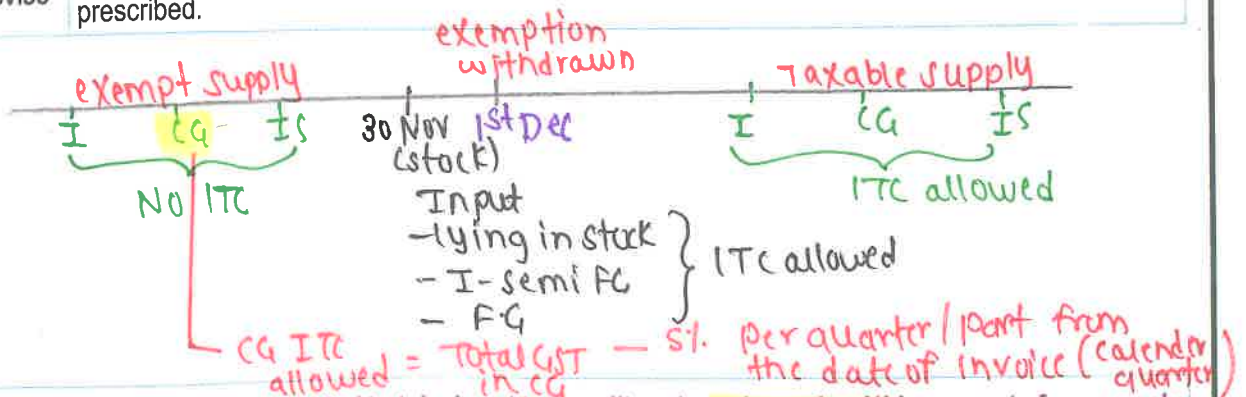 prescribed.
exemption
withdrawn
exempt supply
Taxable supply
I CG IS
30 Nov 1st Dec
I CG IS
(stock)
No ITC
ITC allowed
Input
-lying in stock
- I-semi FG
- F.G
ITC allowed
CG ITC allowed = Total GST in CG - 5% per quarter/part from the date of invoice (calender quarter)